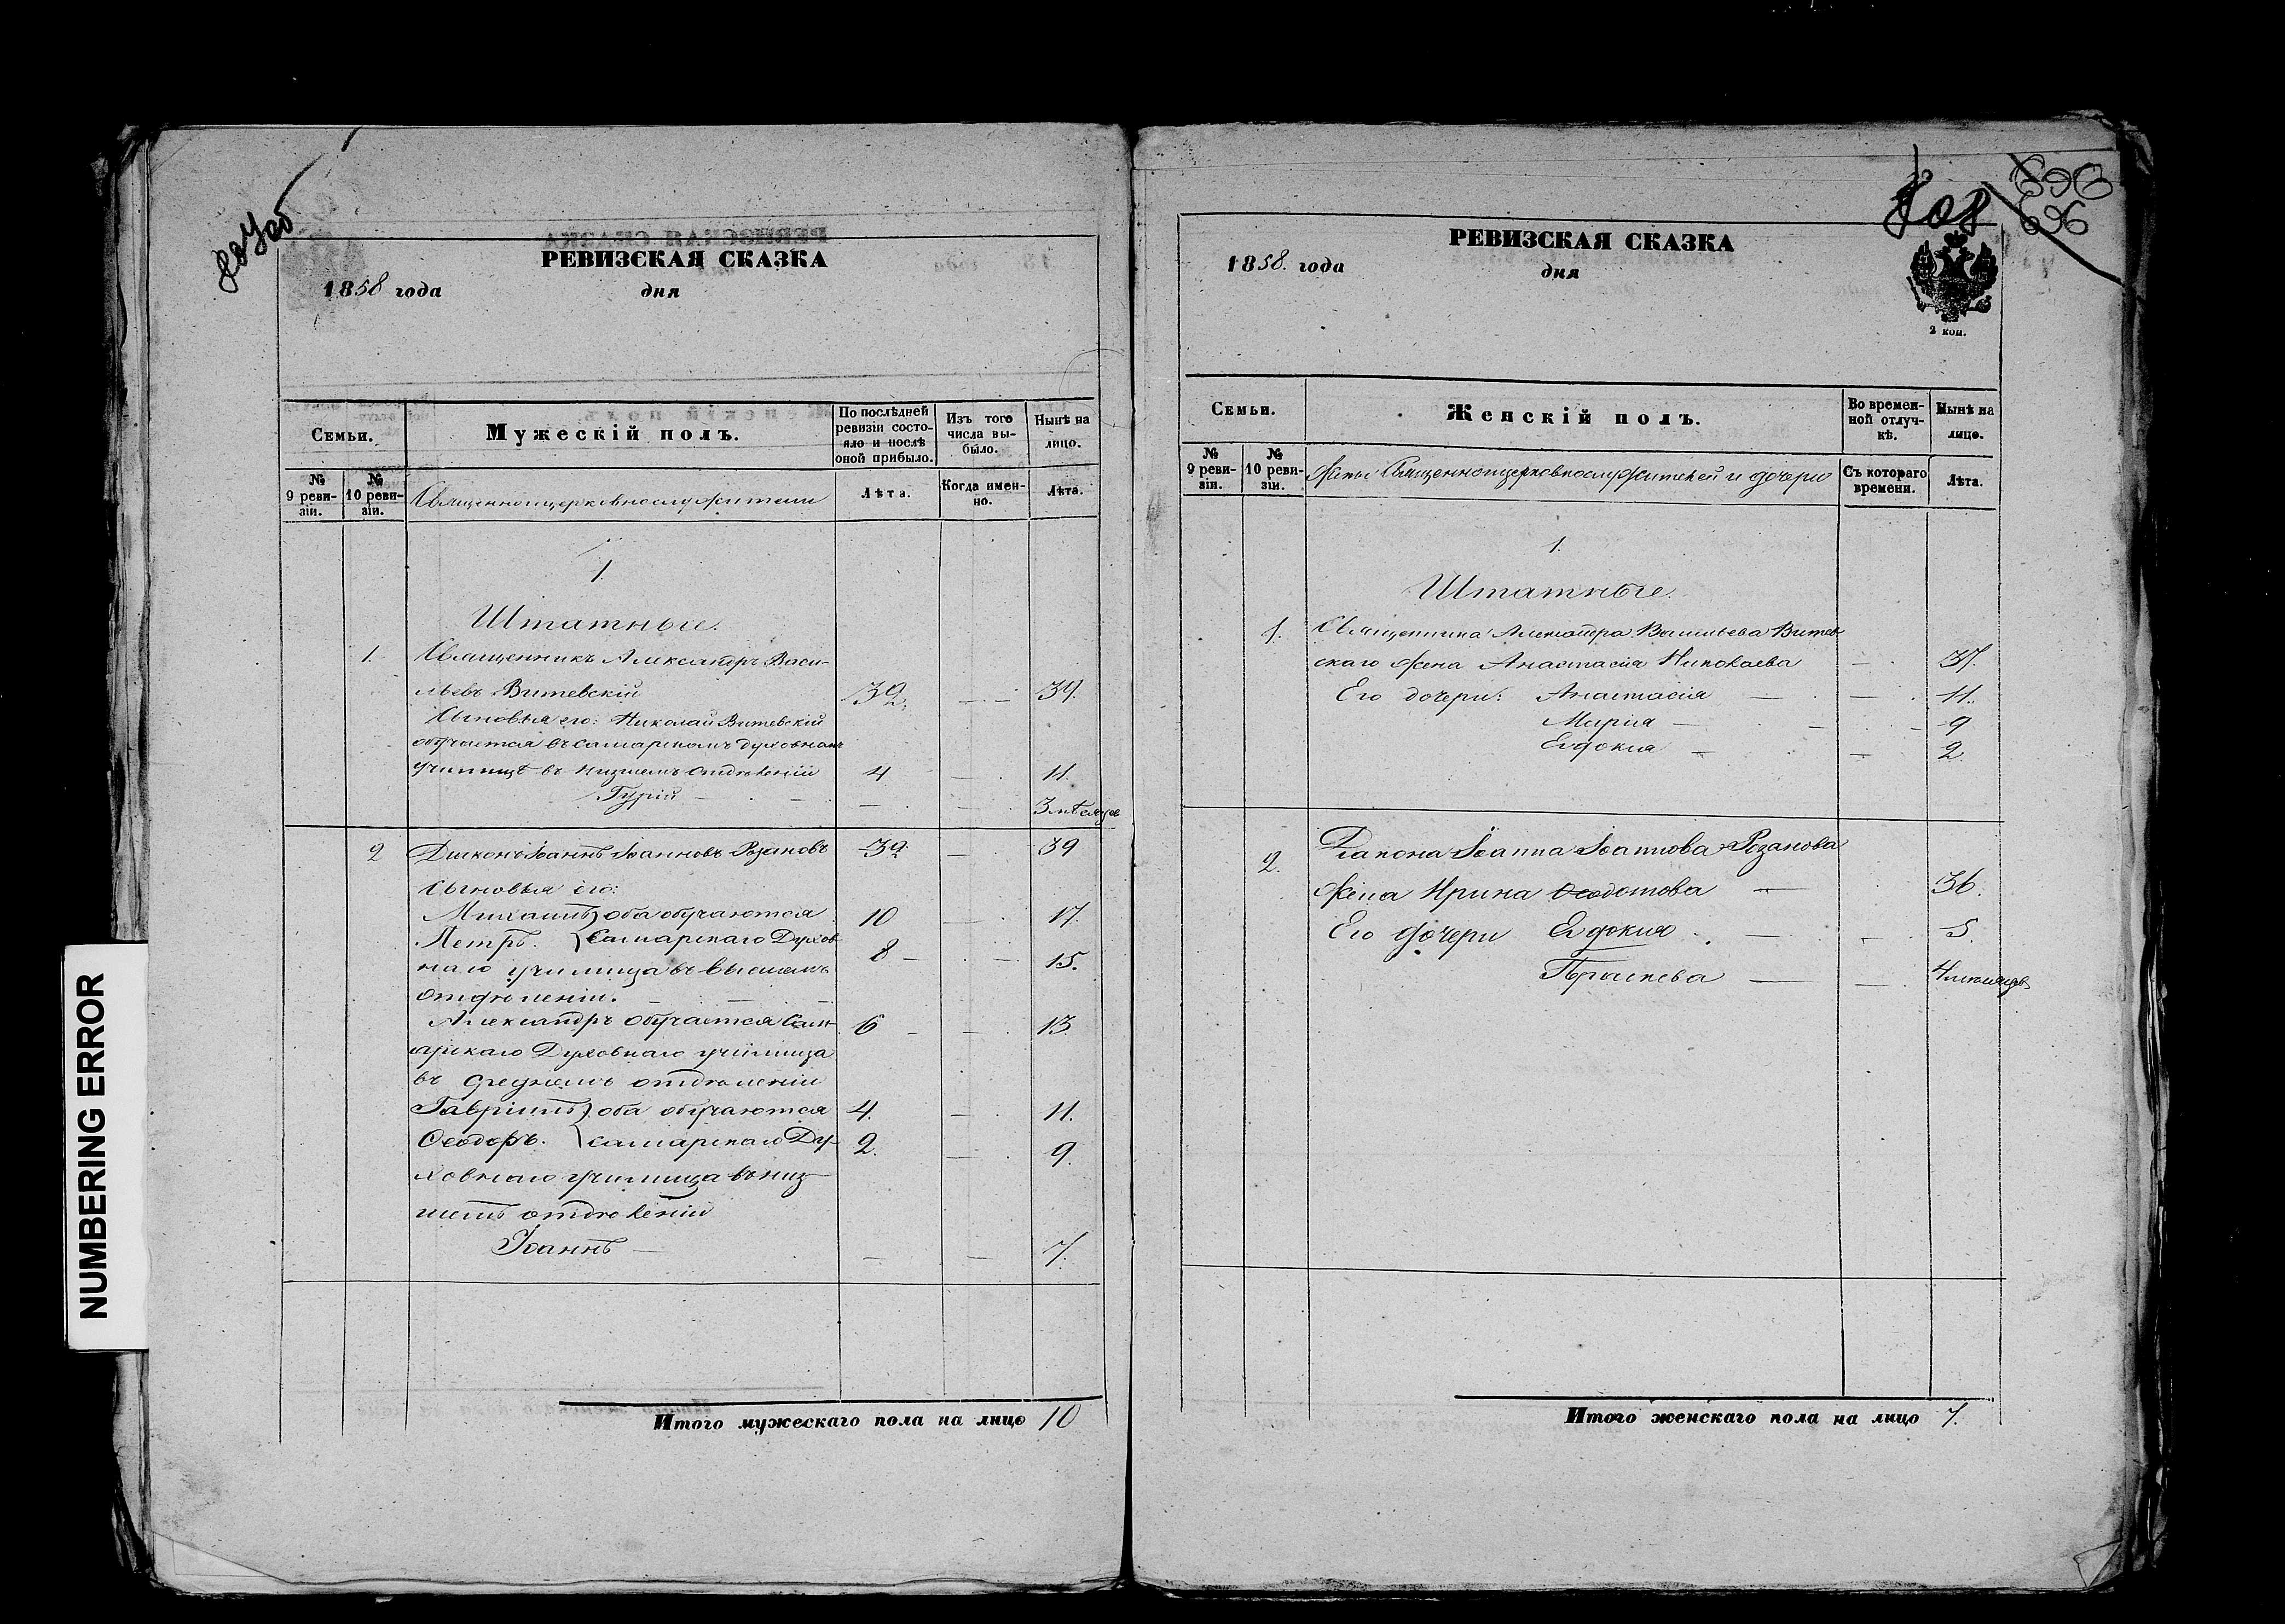 NUMBERING ERROR
РЕВИЗСКАЯ СКАЗКА
1858 года дня
Семьи.
Мужескій полъ.
По послѣдней ревизіи состояло и послѣ оной прибыло.
Изъ того числа выбыло.
Нынѣ на лицо.
№ 9 ревизіи.
№ 10 ревизіи.
Священноцерковнослужители
Лѣта.
Когда именно.
Лѣта.
1.
Штатные.
1. Священникъ Александръ Васи-
льевъ Витевскій 32. 39.
Сыновья его: Николай Витевскій
обучается въ самарскомъ духовномъ
училищѣ въ низшемъ отдѣленіи 4 11.
Гурій 3 мѣсяца
2 Диаконъ Іоаннъ Іоанновъ Розановъ 32 39
Сыновья его:
Михаилъ } оба обучаются 10 17.
Петръ. } Самарскаго Духов-
8 15.
наго училища въ высшемъ
отдѣленіи.
Александръ обучается Сам- 6 13.
арскаго Духовнаго училища
въ среднемъ отдѣленіи
Гавріилъ } оба обучаются 4. 11.
Ѳеодоръ. } самарскаго Ду- 2. 9.
ховнаго училища въ низ-
шемъ отдѣленіи
Іоаннъ 7.
Итого мужескаго пола на лицо 10
808
696
РЕВИЗСКАЯ СКАЗКА
1858. года дня
2 коп.
Семьи.
Женскій полъ.
Во временной отлучкѣ.
Нынѣ на лицо.
№ 9 ревизіи.
№ 10 ревизіи.
Жены Священноцерковнослужителей и дочери
Съ котораго времени.
Лѣта.
1.
Штатные.
1. Священника Александра Васильева Витев
скаго жена Анастасія Николаева 37.
Его дочери: Анастасія 11.
Марія 9
Евдокия 2.
2. Диакона Іоанна Іоаннова Розанова
жена Ирина Ѳеодотова 36.
Его дочери Евдокия 5.
Праскева 4 месяцъ
Итого женскаго пола на лицо 7.